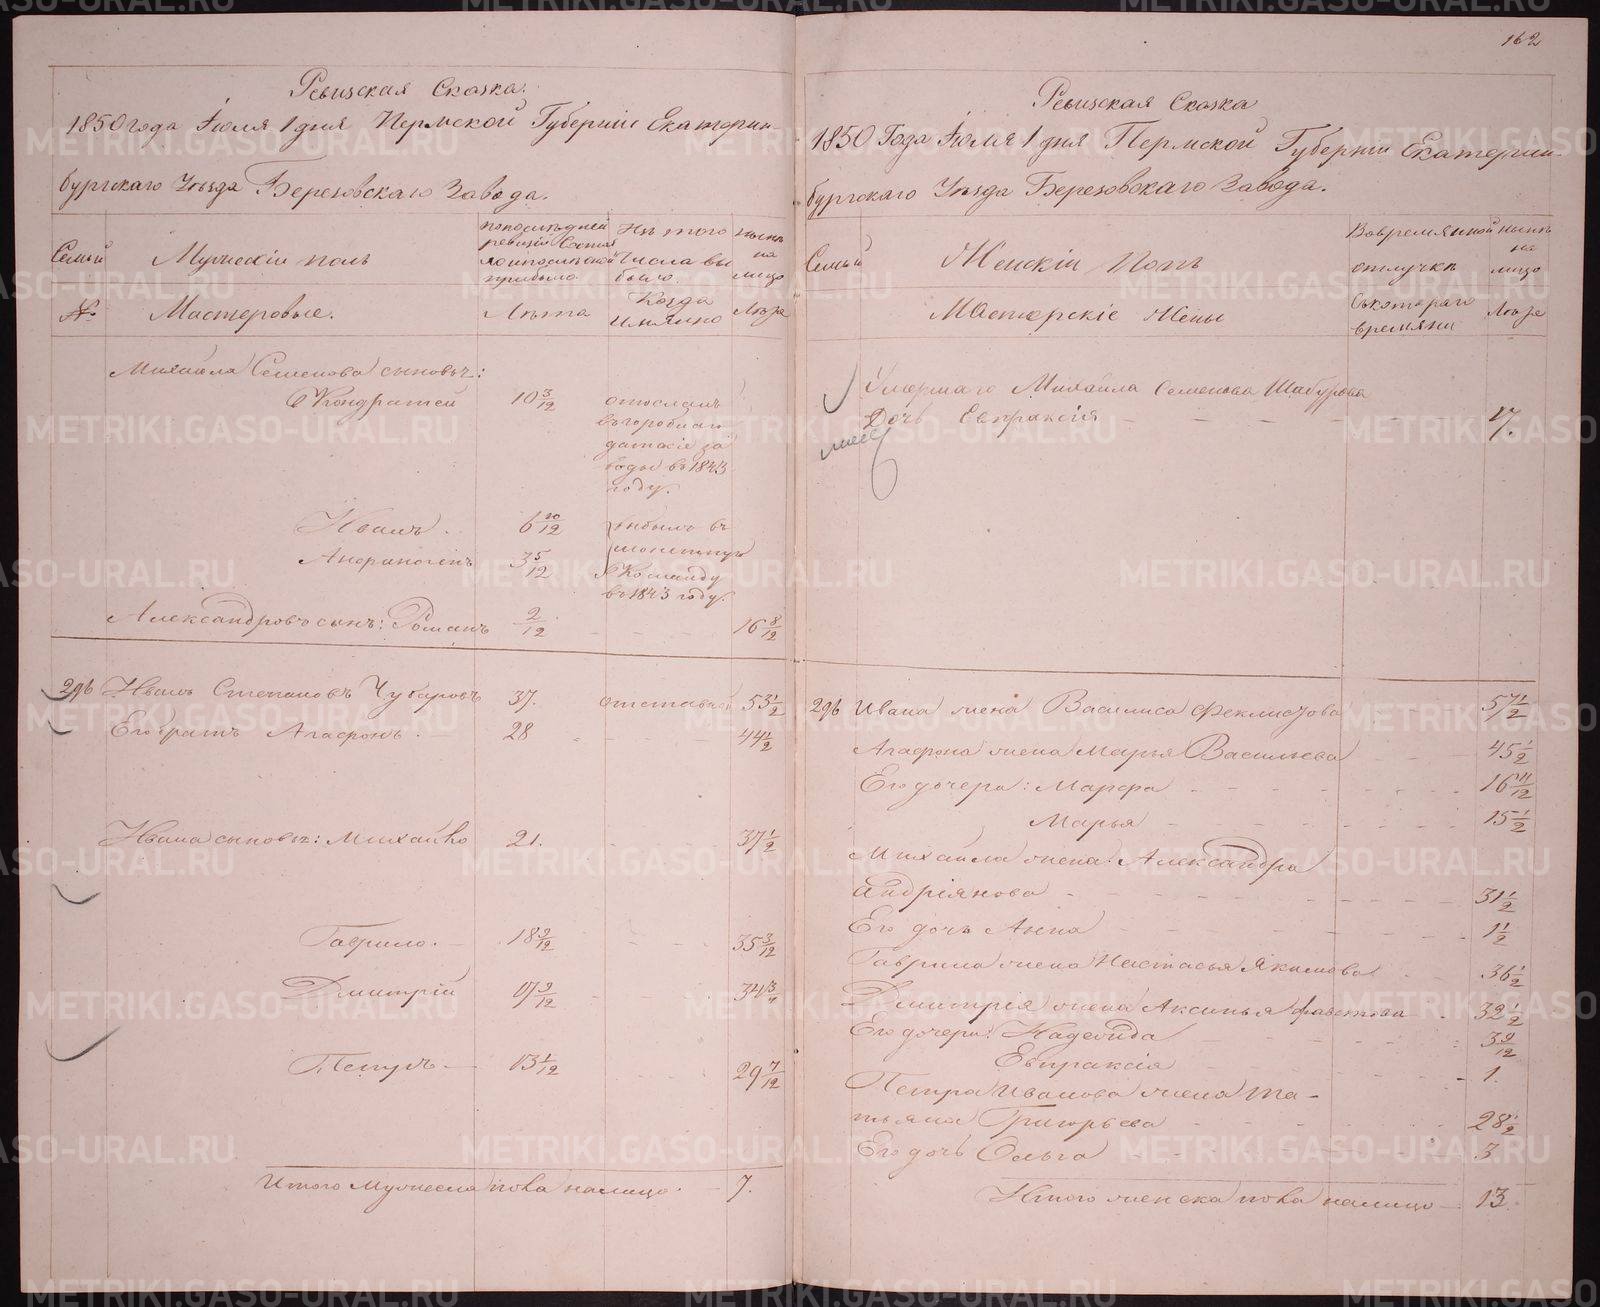 Ревизская Сказка.
1850 года Іюля 1 дня Пермской Губерніи Екатерин-
бургскаго Уѣзда Березовскаго Завода.
Семьи
Мужескій полъ
по последней
ревизіи Состоя
ло и после оной
прибыло
Изъ того
Числа вы
было.
нынѣ
на
лицо
№
Мастеровые.
Лѣта
Когда
Имянно
Лѣта
Михаила Семенова сыновья:
Кондратей 10 3/12 отосланъ
въ горобла
годатскіе за
воды въ 1843
году.
Иванъ. 6 10/12 выбылъ въ
монетную
Аѳиногенъ 3 5/12 Команду
въ 1843 году.
Александровъ сынъ: Романъ 2/12 16 8/12
296 Иванъ Степановъ Чубаровъ 37. отставной 53 1/2
Его братъ Агафонъ. 28 44 1/2
Ивана сыновья: Михайло 21. 37 1/2
Гаврило. 18 9/12 35 3/12
Дмитрій 17 9/12 34 3/4
Петръ. 13 1/12 29 7/12
Итого Мужеска пола налицо. 7.
162
Ревизская Сказка
1850 Года Іюля 1 дня Пермской Губерніи Екатерин-
бургскаго Уѣзда Березовскаго Завода.
Семьи
Женскій Полъ
Во временной
отлучкѣ
нынѣ
на
лицо
Мастерскіе Жены
Съ котораго
времяни
Лѣта
Умершаго Михаила Семенова Шабурова
Дочь Евпраксія 17.
296 Ивана жена Василиса Феклистова 57 1/2
Агафона жена Марья Васильева 45 1/2
Его дочери: Марфа 16 11/12
Марья 15 1/2
Михаила жена: Александра
Андріянова 31 1/2
Его дочь Анна 1 1/2
Гаврила жена Настасья Якимова 36 1/2
Дмитрія жена Аксинья Фавстова 32 1/2
Его дочери: Надежда 3 9/12
Евпраксія 1.
Петра Иванова жена Та-
тьяна Григорьева 28 1/2
Его дочь Ольга 3
Итого женска пола налицо 13
METRIKI.GASO-URAL.RU